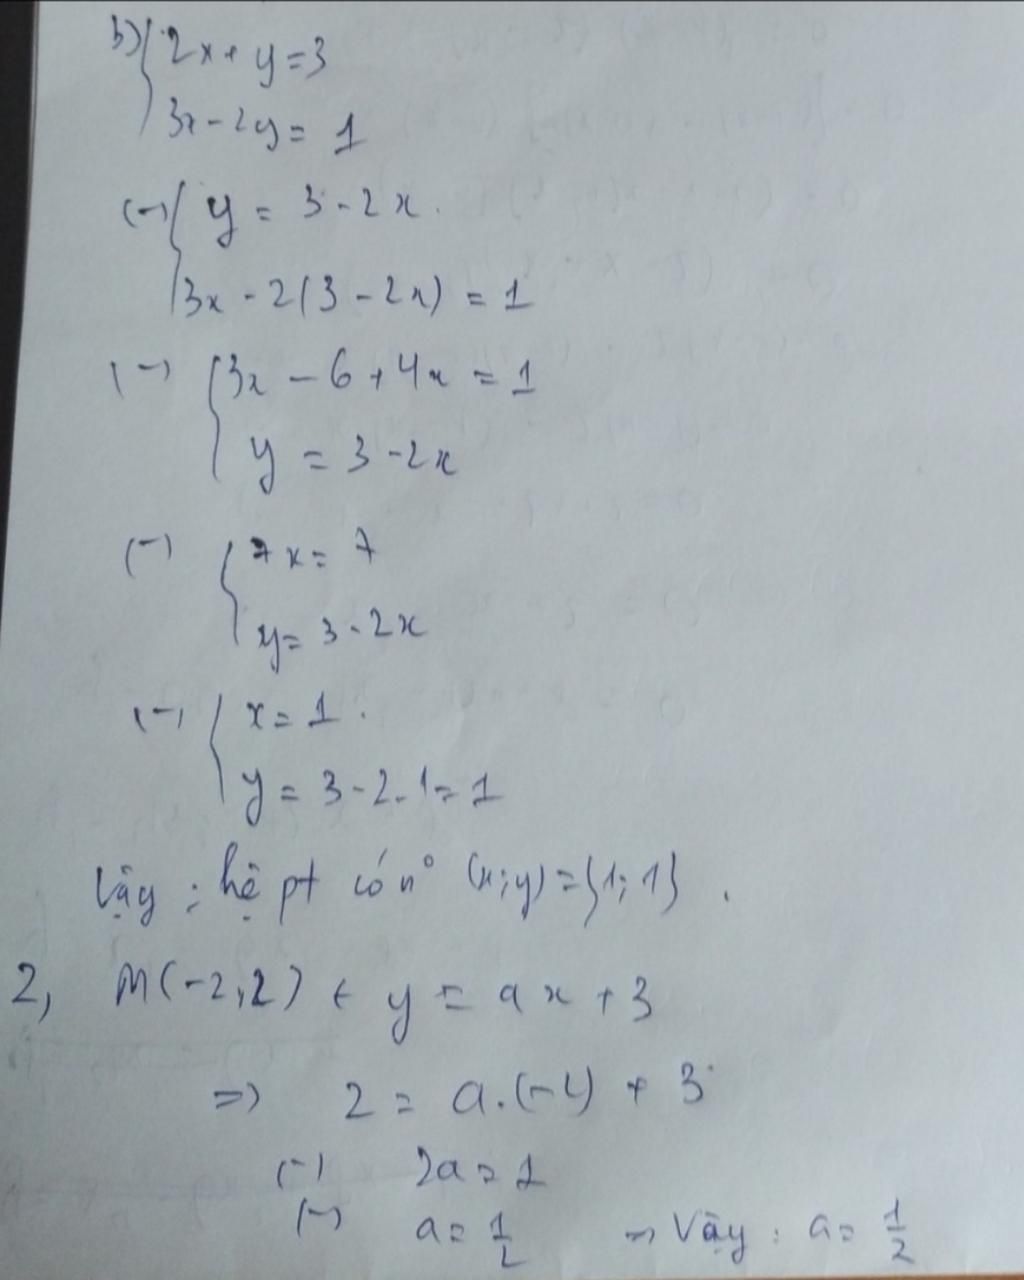 b) { 2x + y = 3
3x - 2y = 1
(-) { y = 3 - 2x.
3x - 2(3 - 2x) = 1
(-) { 3x - 6 + 4x = 1
y = 3 - 2x
(-) { 7x = 7
y = 3 - 2x
(-) { x = 1.
y = 3 - 2.1 = 1
Vậy : hệ pt có n° (x;y) = {1; 1}.
2, M(-2,2) ∈ y = ax + 3
=> 2 = a.(-2) + 3
(-) 2a = 1
(-) a = 1/2 => Vậy : a = 1/2